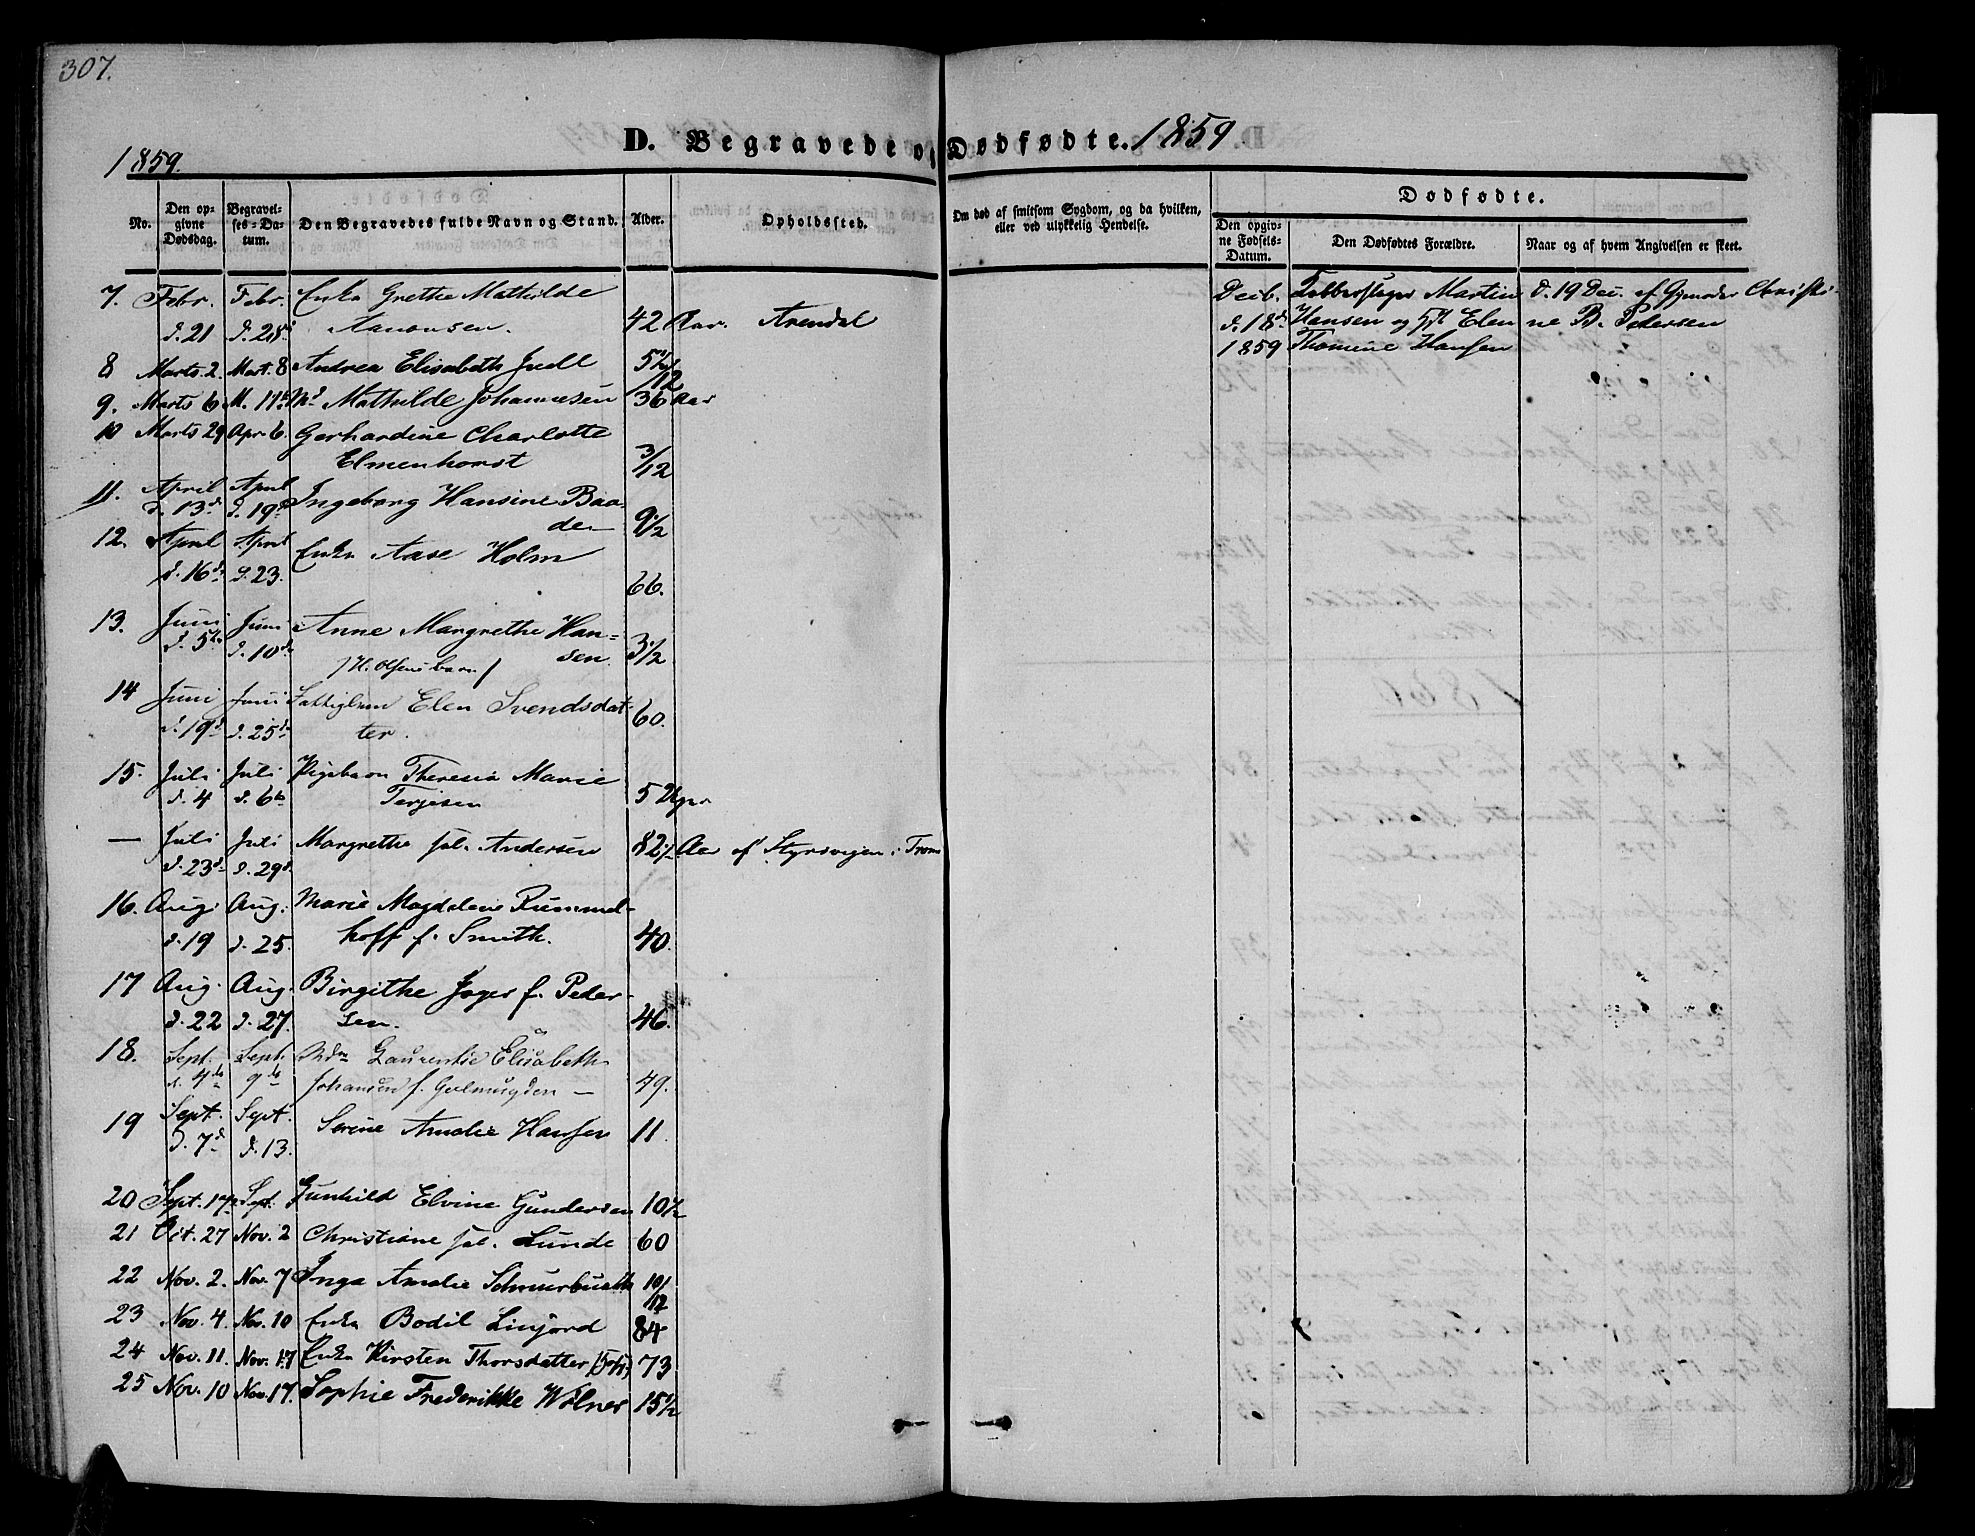 307.
D. Begravede og Dødfødte. 1859
1859.
No.
Den opgivne Dødsdag.
Begravelses-Datum.
Den Begravedes fulde Navn og Stand.
Alder.
Opholdssted.
Om død af smitsom Sygdom, og da hvilken, eller ved ulykkelig Hendelse.
Dødfødte.
Den opgivne Fødsels-Datum.
Den Dødfødtes Forældre.
Naar og af hvem Angivelsen er skeet.
7. Febr. Febr. Enke Grethe Mathilde
d. 21 d. 28de Aanonsen. 42 Aar. Arendal
8 Marts 2. Mart. 8 Andrea Elisabeth Juell 5 1/2/12
9. Marts 6 M. 11te Md Mathilde Johannesen 36 Aar
10 Marts 29 Apr 6. Gerhardine Charlotte
Elmenhorst 3/12
11. April April Ingeborg Hansine Baa-
d. 13de d. 19de den 9 1/2
12. April April Enke Aase Holm
d. 16de d. 23. 66.
13. Juni Juni Anne Margrethe Han-
d. 5te d. 10de sen 3 1/2
/H. Olsens barn/
14 Juni Juni Fattiglem Elen Svendsdat-
d. 19de d. 25de ter. 60.
15. Juli Juli Pigebarn Theresia Marie
d. 4 d. 6te Terjesen 5 Uger
— Juli Juli Margrethe sal. Andersen 82 1/2 Aar af Styrsvigen i Trom
d. 23de d. 29de
16. Aug. Aug. Marie Magdalene Rummel-
d. 19 d. 25. hoff f. Smith. 40.
17 Aug. Aug. Birgithe Jager f. Peder-
d. 22 d. 27. sen. 46.
18. Sept. Sept. Mdm Laurentse Elisabeth
d. 4de 9de Johansen f. Gulmugden — 49.
19 Sept. Sept. Serine Amalie Hansen 11
d. 7de d. 13.
20 Sept. 17 Sept. Gunhild Elvine Gundersen 10 1/2
21 Oct. 27 Nov. 2 Christiane sal. Lunde 60
22 Nov. 2. Nov. 7 Inga Amalie Schnurbusch 10/12
23 Nov. 4. Nov. 10 Enke Bodil Linjord 84
24 Nov. 11. Nov. 17 Enke Kirsten Thorsdatter 73
25 Nov. 10 Nov. 17. Sophie Frederikke Wölner 15 1/2
Decb. Kobberslager Martin d. 19 Dec. af Gjmoder Christi-
d. 18de Hansen og H Elen ne B. Pedersen
1859 Thomine Hansen